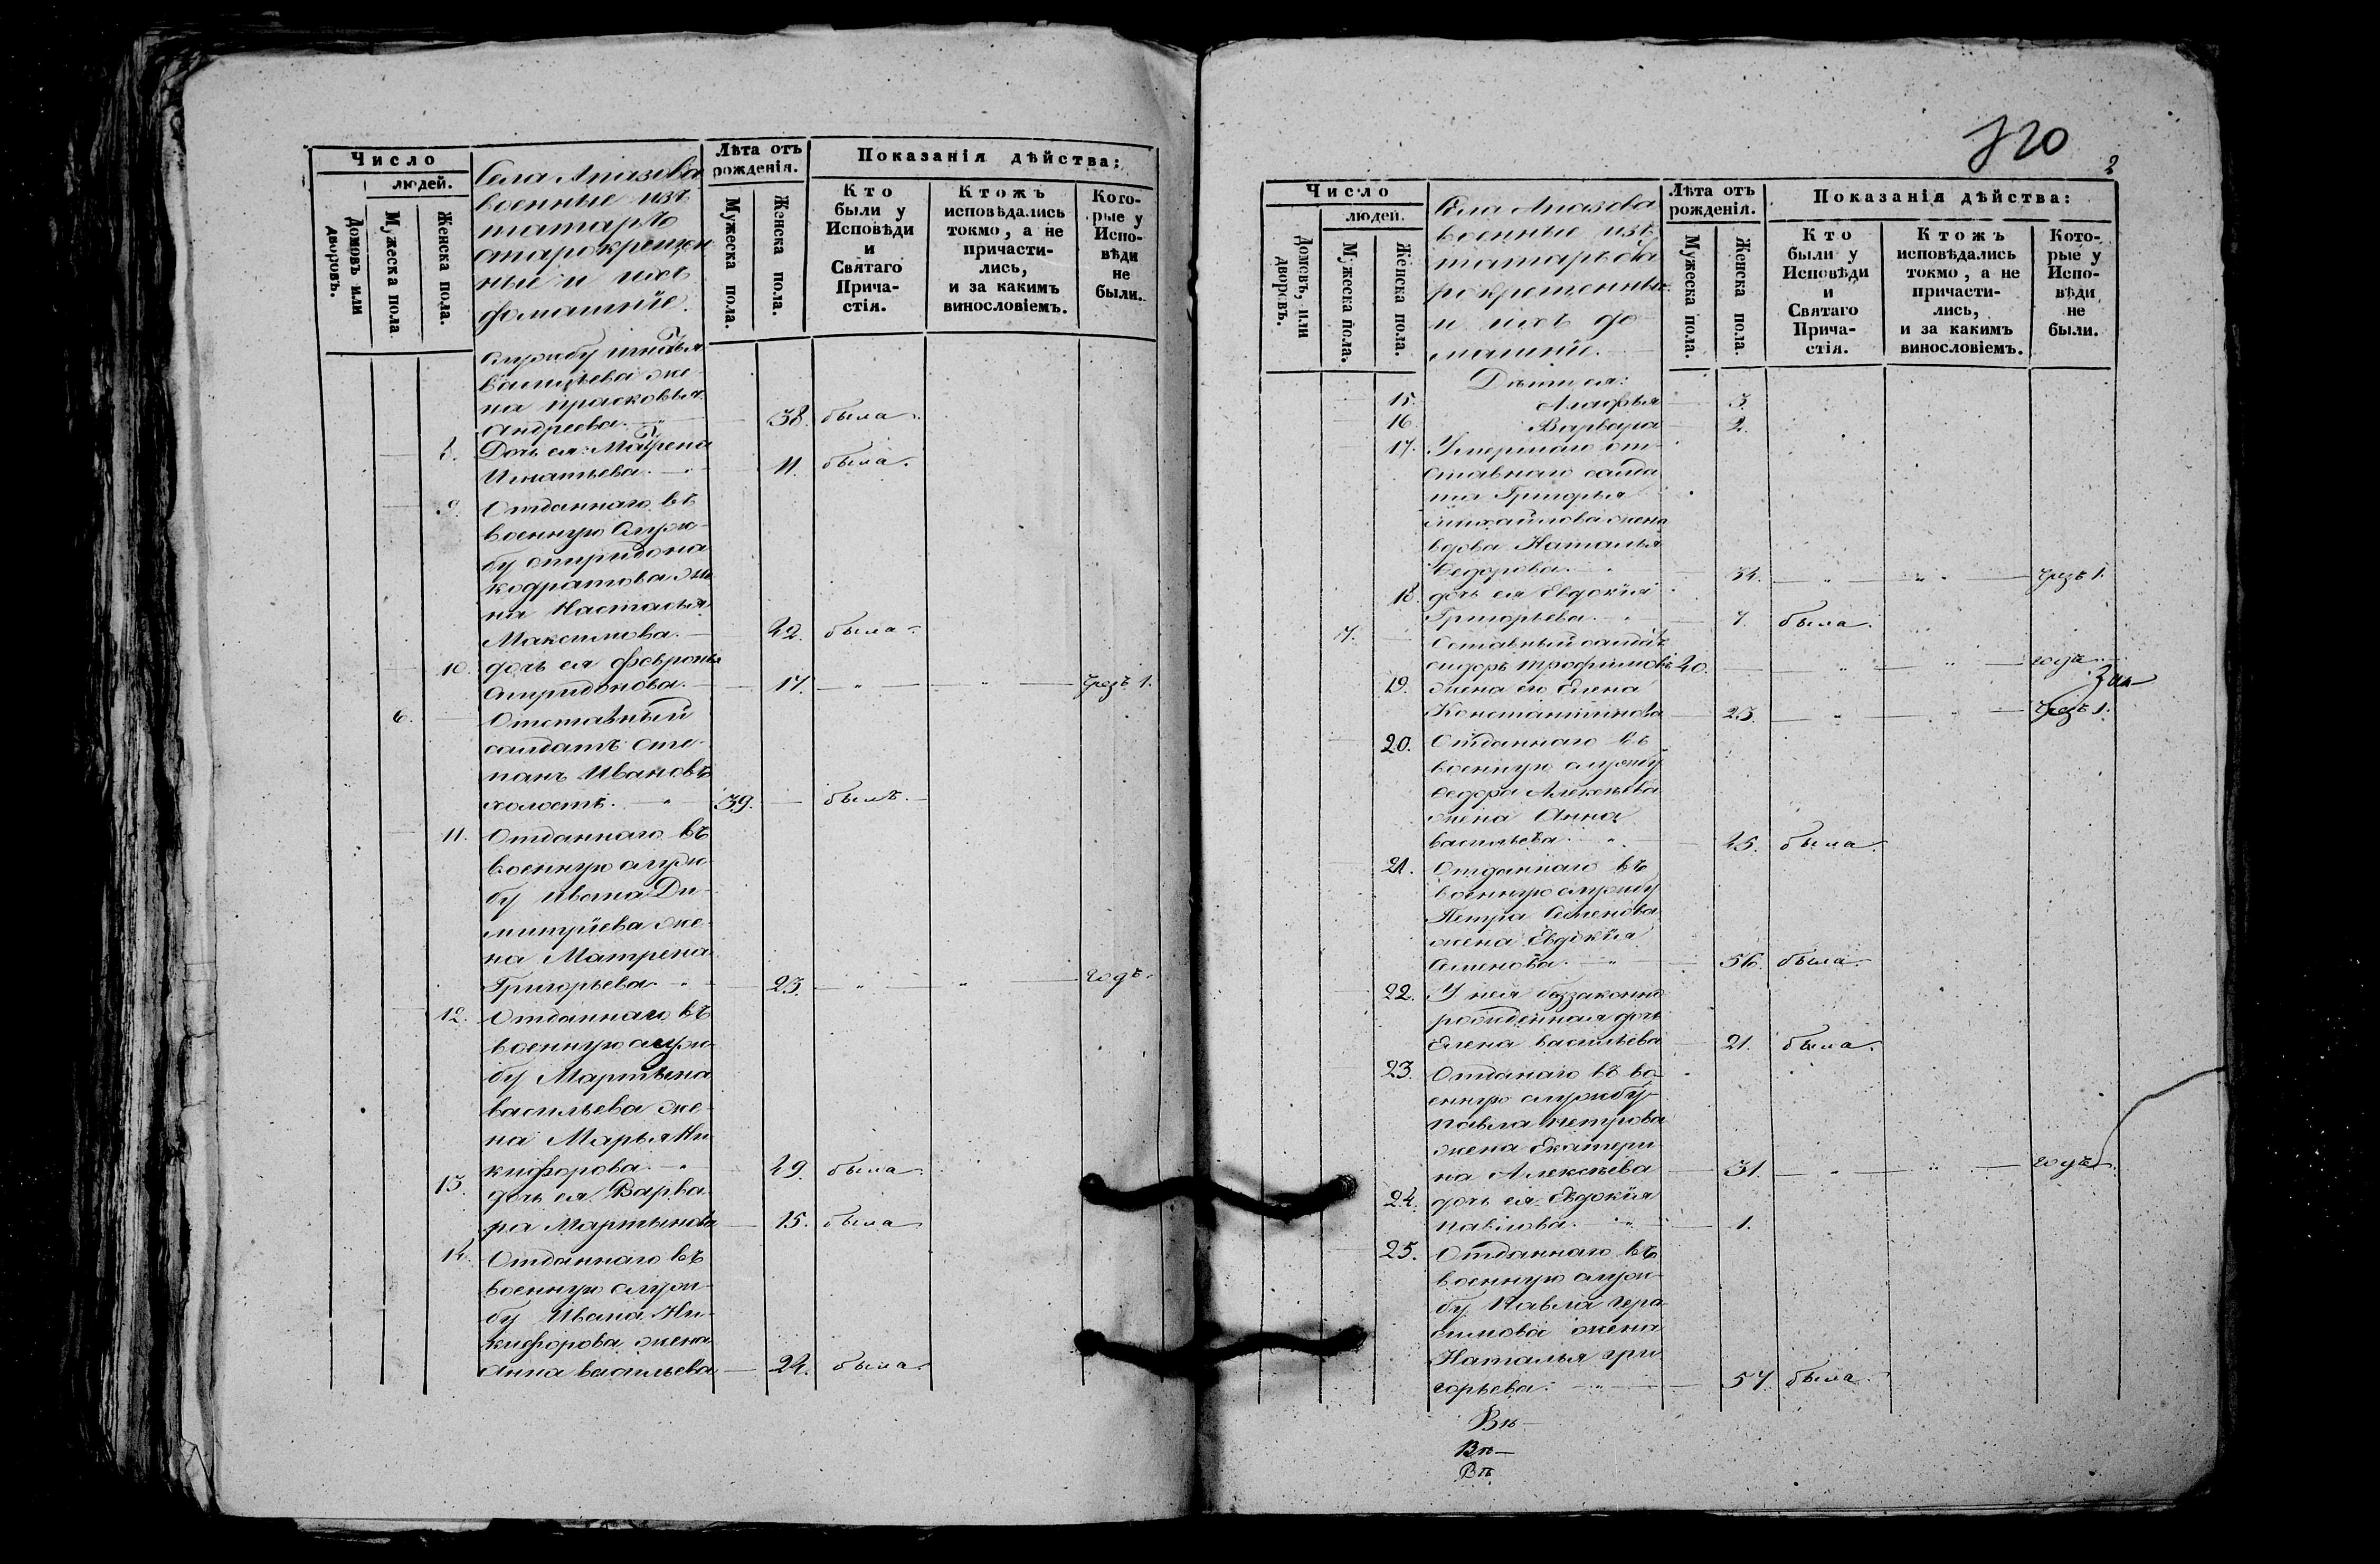 Число
людей.
Домовъ или дворовъ.
Мужеска пола
Женска пола.
Села Апазова
военные изъ
татаръ
старокрещен
ные и ихъ
домашніе.
Лѣта отъ рожденія.
Мужеска пола.
Женска пола.
Показанія дѣйства:
Кто были у Исповѣди и Святаго Прича-стія.
Ктожъ исповѣдались токмо, а не причасти-лись, и за какимъ винословіемъ.
Кото-рые у Испо-вѣди не были.
службу Игнатья
Васильева же-
на Прасковья
Андреева. 38. была.
8. Дочь ея Матрена
Игнатьева. 11. была.
9. Отданнаго въ
военную служ-
бу Спиридона
Кодратова же
на Настасья
Максимова. 42. была.
10. дочь ея Февронья
Спиридонова. 17. чрезъ 1.
6. Отставный
солдатъ Сте-
панъ Ивановъ
холостъ. 39. былъ.
11. Отданнаго въ
военную служ-
бу Ивана Ди-
митріева же-
на Матрена
Григорьева. 23. годъ.
12. Отданнаго въ
военную служ-
бу Мартына
Васильева же-
на Марья Ни-
кифорова. 49. была
13. дочь ея Варва-
ра Мартынова 15. была
14. Отданнаго въ
военную служ-
бу Ивана Ни-
кифорова жена
Анна Васильева 24. была.
320
2
Число
людей.
Домовъ, или дворовъ.
Мужеска пола.
Женска пола.
Села Апазова
военные изъ
татаръ ста
рокрещенные
и ихъ до-
машніе.
Лѣта отъ рожденія.
Мужеска пола.
Женска пола.
Показанія дѣйства:
Кто были у Исповѣди и Святаго Прича-стія.
Ктожъ исповѣдались токмо, а не причасти-лись, и за какимъ винословіемъ.
Кото-рые у Испо-вѣди не были.
Дѣти ея:
15. Агафья 3.
16. Варвара 2.
17. Умершаго от-
ставнаго солда
та Григорья
Михайлова жена
вдова Наталья
Ѳедорова. 34. чрезъ 1.
18. дочь ея Евдокія
Григорьева. 7. была.
7. Отставный солдатъ
Сидоръ Трофимовъ 40. годъ
19. жена его Елена
Константинова 25. чрезъ 1.
20. Отданнаго въ
военную службу
Ѳедора Алексѣева
жена Анна
Васильева. 45. была.
21. Отданнаго въ
военную службу
Петра Семенова
жена Евдокія
Семенова. 56. была.
22. У нея беззаконно
рожденная дочь
Елена Васильева 21. была.
23. Отданаго въ во-
енную службу
Павла Петрова
жена Екатери
на Алексѣева 31. годъ
24. дочь ея Евдокія
Павлова. 1.
25. Отданнаго въ
военную служ-
бу Павла Гера-
симова жена
Наталья Гри
горьева. 57. была